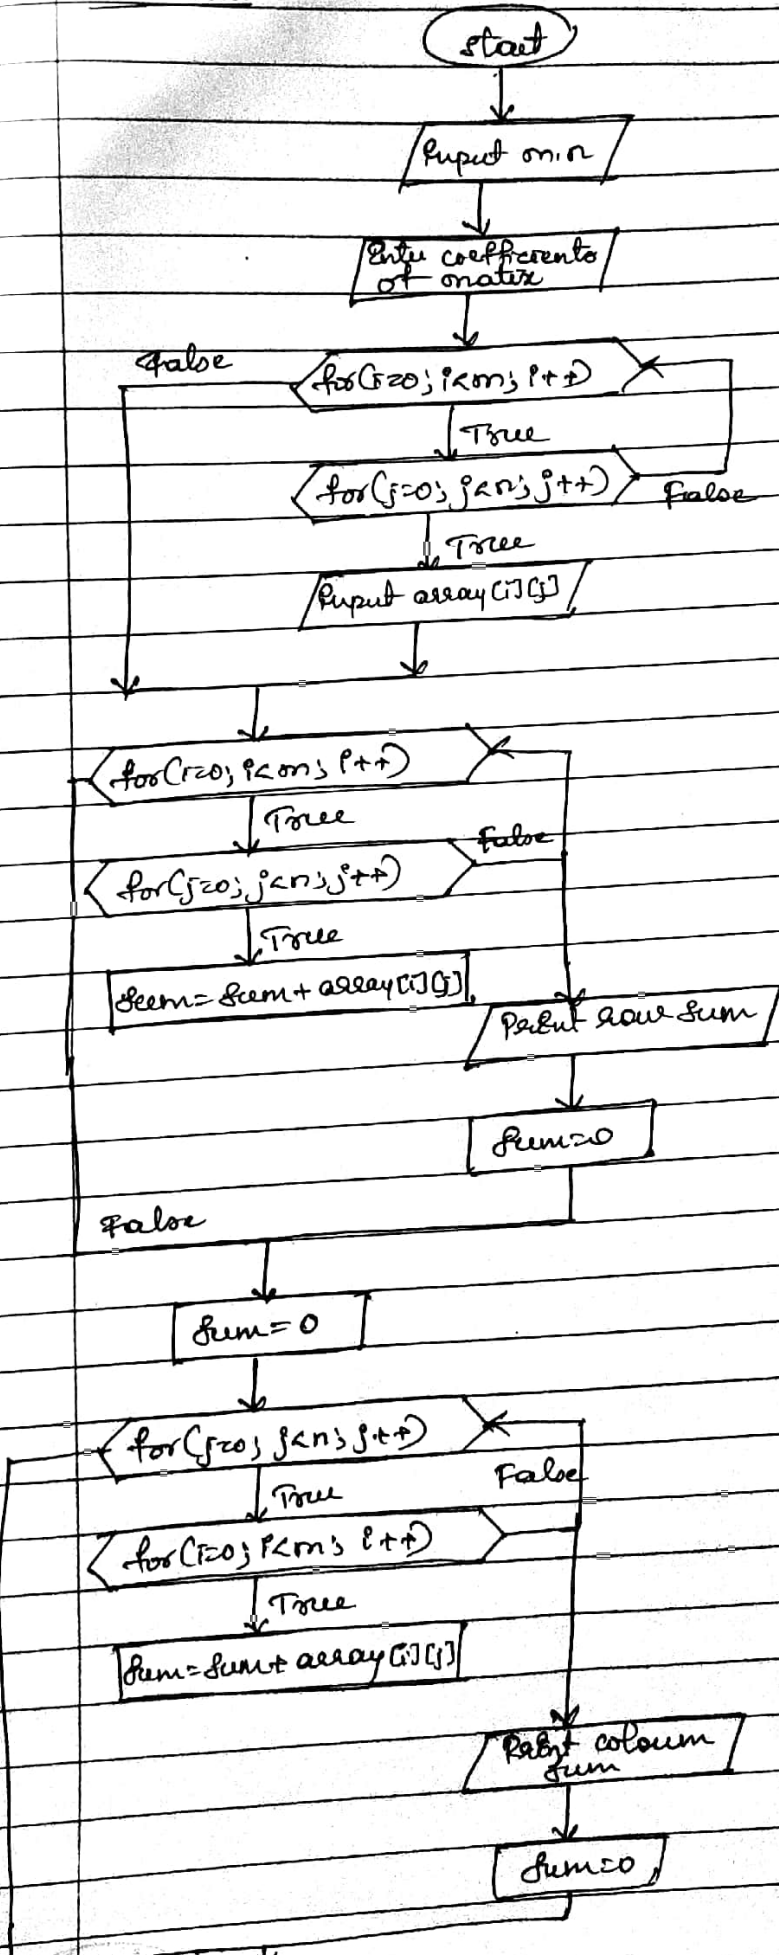 start
Input m,n
Enter coefficients
of matix
False
for(i=0; i<m; i++)
True
for(j=0; j<n; j++)
False
True
Input array[i][j]
for(i=0; i<m; i++)
True
False
for(j=0; j<n; j++)
True
Sum=Sum+array[i][j]
Print row Sum
Sum=0
False
Sum=0
for(j=0; j<n; j++)
False
True
for(i=0; i<m; i++)
True
Sum=Sum+array[i][j]
Print coloum
Sum
Sum=0